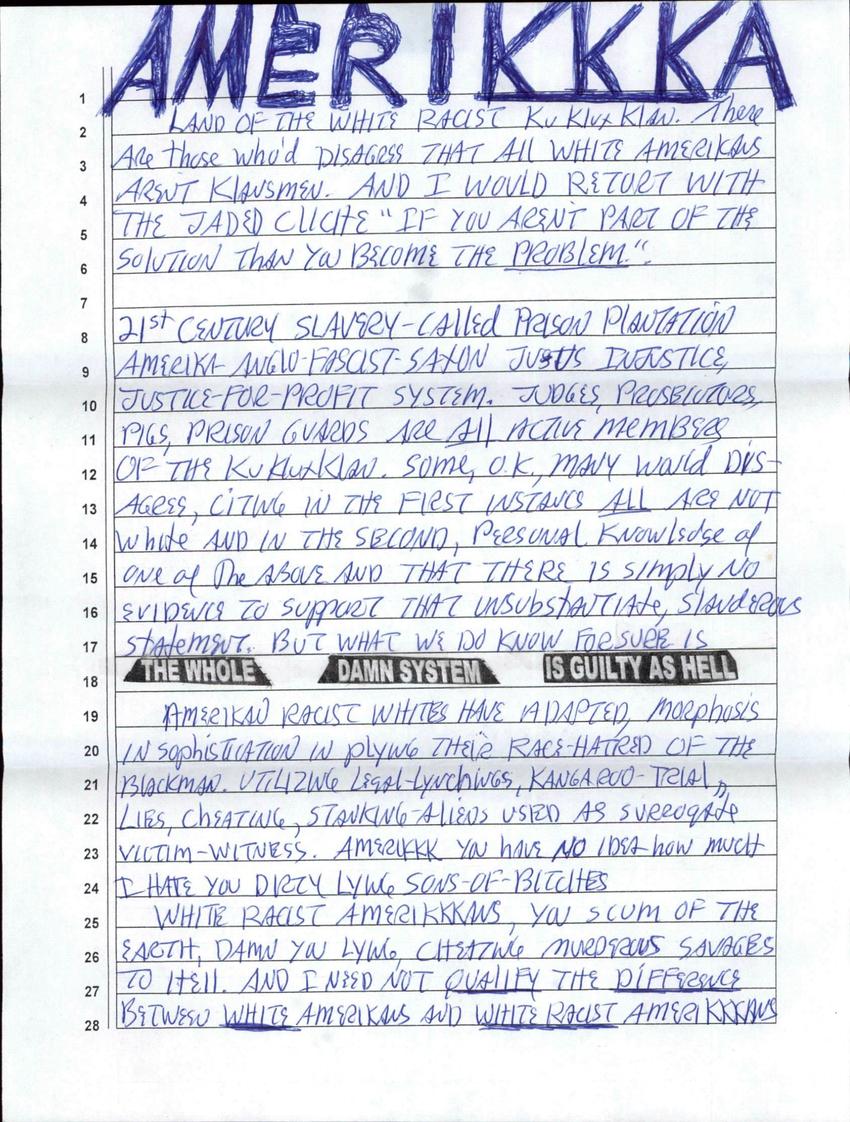 AMERIKKKA
1
LAND OF THE WHITE RACIST Ku Klux Klan. There
2
Are those who'd DISAGREE THAT All WHITE AMERIKANS
3
AREN'T KlANSMEN. AND I WOULD RETORT WITH
4
THE JADED CliCHE "IF YOU AREN'T PART OF THE
5
SOlUTION THAN YOU BECOME THE PROBLEM.".
6
7
21st CENTURY SLAVERY-CAlled PRISON PlANTATION
8
AMERIKA-ANGlO-FASCIST-SAXON JUSTUS INJUSTICE,
9
JUSTICE-FOR-PROFIT SYSTEM. JUDGES, PROSECUTORS,
10
PIGS, PRISON GUARDS ARE All ACTIVE MEMBERS
11
OF THE Ku KluxKlAN. SOME, O.K., MANY Would DIS-
12
AGREE, CITING IN THE FIRST INSTANCE ALL ARE NOT
13
White AND IN THE SECOND, PERSONAL KNOWledge of
14
ONE of The ABOVE AND THAT THERE IS SIMPly NO
15
EVIDENCE TO SUPPORT THAT UNSUbSTANTIATE, SlANDEROUS
16
STATEMENT. BUT WHAT WE DO KNOW FOR SURE IS
17
THE WHOLE DAMN SYSTEM IS GUILTY AS HELL
18
AMERIKAN RACIST WHITES HAVE ADAPTED, MORPHOSIS
19
IN SOPhISTICATION IN PlYING THEIR RACE-HATRED OF THE
20
BlACKMAN. UTILIZING LEGAl-LYNCHINGS, KANGAROO-TRIAL,
21
LIES, ChEATING, STANKING-AlIENS USED AS SURROGATE
22
VICTIM-WITNESS. AMERIKKK YOU HAVE NO IDEA how much
23
I HATE YOU DIRTY LYING SONS-OF-BITCHES
24
WHITE RACIST AMERIKKKANS, YOU SCUM OF THE
25
EARTH, DAMN YOU LYING, CHEATING MURDEROUS SAVAGES
26
TO HEll. AND I NEED NOT QUALIFY THE DIFFERENCE
27
BETWEEN WHITE AMERIKANS AND WHITE RACIST AMERIKKKANS
28